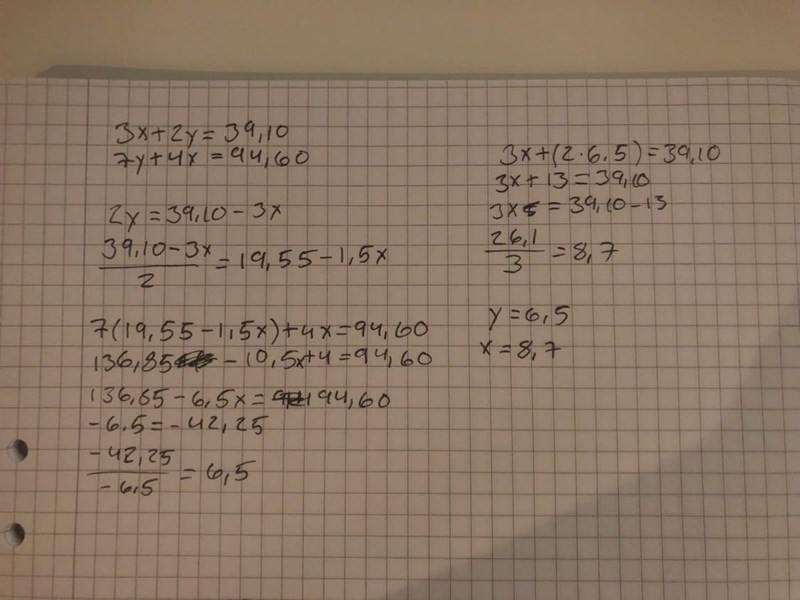 3x+2y=39,10
7y+4x=94,60
2y=39,10-3x
39,10-3x
2
=19,55-1,5x
7(19,55-1,5x)+4x=94,60
136,85 -10,5x+4=94,60
136,85-6,5x= 94,60
-6.5=-42,25
-42,25
-6,5
=6,5
3x+(2·6,5)=39,10
3x+13=39,10
3x =39,10-13
26,1
3
=8,7
y=6,5
x=8,7